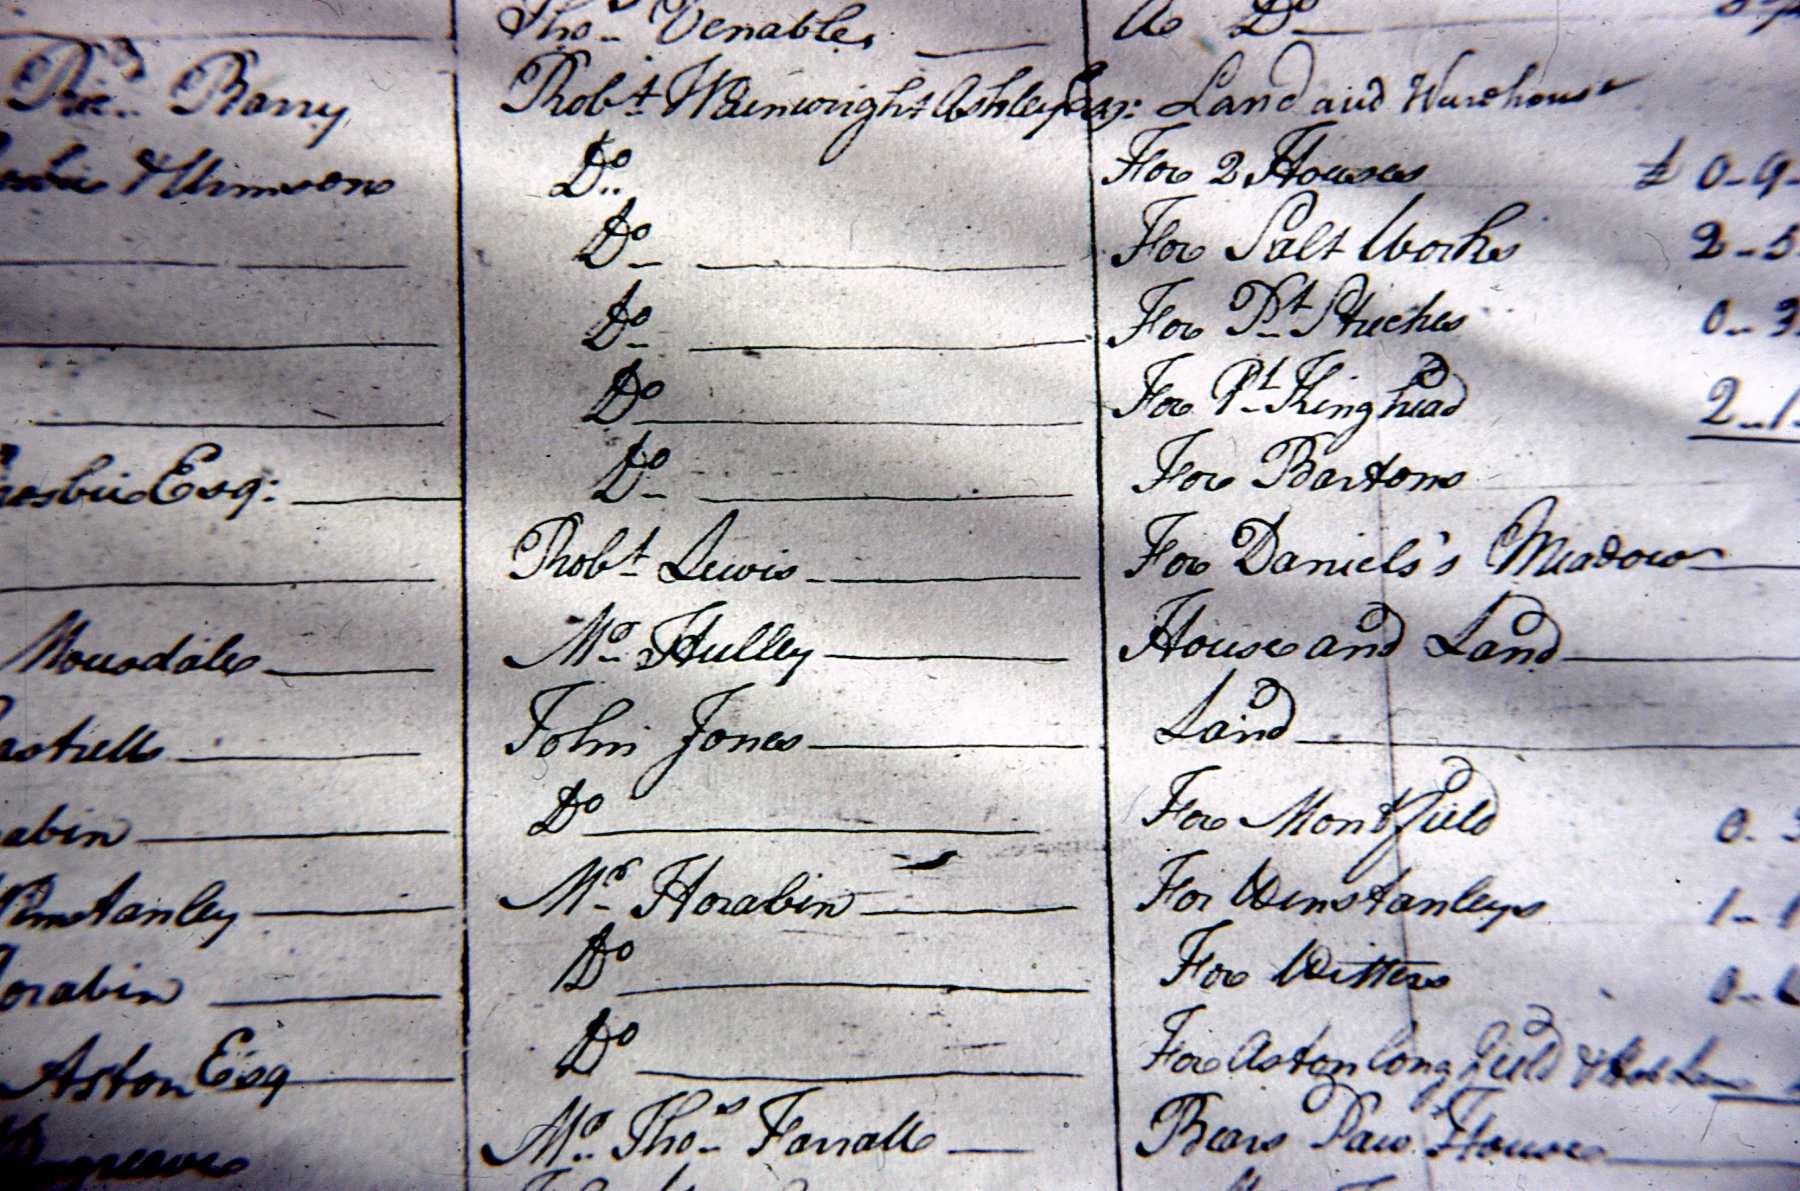 Thos. Venables A Do
Ricd. Barry Robt. Wainwright Ashley Esqr: Land and Warehouse
& Urmsons Do. For 2 Houses £ 0-9-
Do For Salt Works 2-5-
Do For Pt. Stiches 0-3
Do For Pt. Kinghead 2-1-
Esq: Do For Bartons
Robt. Lewis For Daniels's Meadow
Mousdale Mr. Hulley House and Land
John Jones Land
abin Do For Montfield 0-3
Winstanley Mr. Horabin For Winstanleys 1-1
orabin Do For Witters 0-
Aston Esq Do For Aston long field &
Mr. Thos. Farrall Bears Paw House